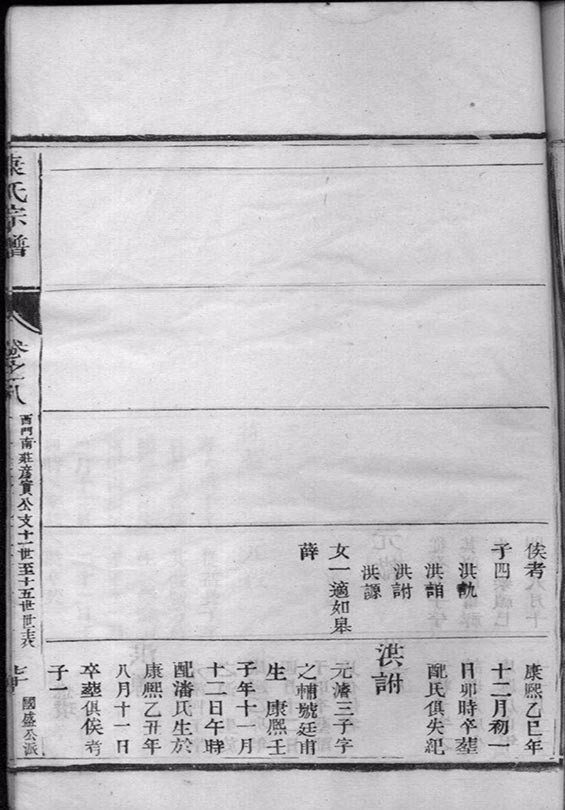 俟考
子四
洪䡄
洪䛍
洪詂
洪謜
女一適如皋
薛
康熙乙巳年
十二月初一
日卯時卒塟
配氏俱失紀
洪詂
元濬三子字
之輔號廷甫
生 康熙壬
子年十一月
十二日午時
配潘氏生於
康熙乙丑年
八月十一日
卒塟俱俟考
子一
氏宗譜
卷之八
西門南莊彥實公支十一世至十五世世表
國盛公派